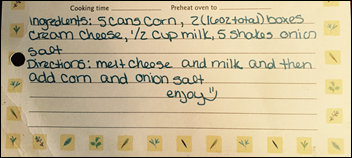 Cooking time Preheat oven to
Ingredients: 5 cans corn, 2 (16oz total) boxes
cream cheese, 1/2 cup milk, 5 shakes onion
salt
Directions: melt cheese and milk and then
add corn and onion salt
enjoy :)